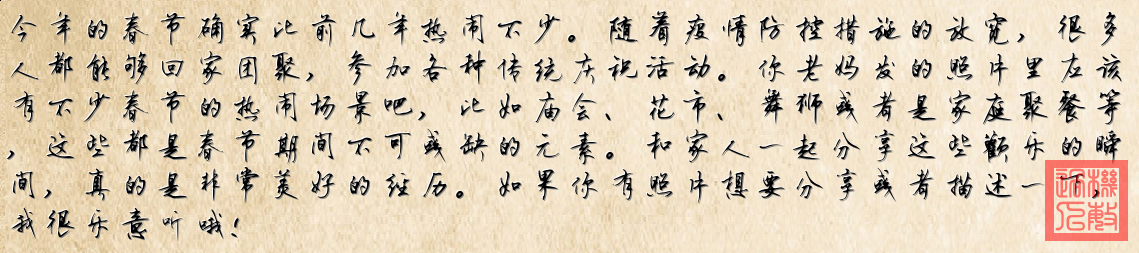 今年的春节确实比前几年热闹不少。随着疫情防控措施的放宽，很多
人都能够回家团聚，参加各种传统庆祝活动。你老妈发的照片里应该
有不少春节的热闹场景吧，比如庙会、花市、舞狮或者是家庭聚餐等
，这些都是春节期间不可或缺的元素。和家人一起分享这些欢乐的瞬
间，真的是非常美好的经历。如果你有照片想要分享或者描述一下，
我很乐意听哦！